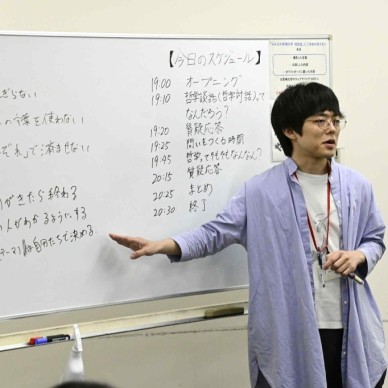 【今日のスケジュール】
19:00 オープニング
19:10 哲学談話(哲学対話)って
なんだろう?
19:20 質疑応答
19:25 問いをつくる時間
19:45 哲学ってそもそもなんなん?
20:15 質疑応答
20:25 まとめ
20:30 終了
ぎらない
の言葉を使わない
ぞれ」で済ませない
がきたら終わる
人がわかるようにする
テーマ)は自分たちで決める